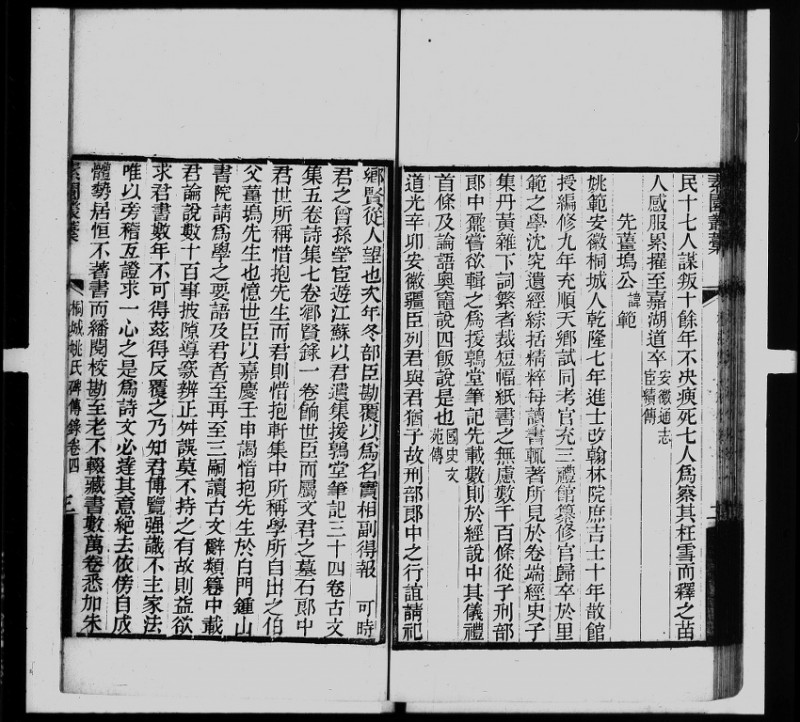 民十七人謀叛十餘年不決瘐死七人爲察其枉雪而釋之苗
人感服累擢至嘉湖道卒安徽通志宦績傳
先薑塢公諱範
姚範安徽桐城人乾隆七年進士改翰林院庶吉士十年散館
授編修九年充順天鄉試同考官充三禮館纂修官歸卒於里
範之學沈究遺經綜括精粹每讀書輒著所見於卷端經史子
集丹黃雜下詞繁者裁短幅紙書之無慮數千百條從子刑部
郎中鼐嘗欲輯之爲援鶉堂筆記先載數則於經說中其儀禮
首條及論語奧竈說四飯說是也國史文苑傳
道光辛卯安徽疆臣列君與君猶子故刑部郎中之行誼請祀
鄉賢從人望也次年冬部臣勘覆以爲名實相副得報 可時
君之曾孫瑩宦遊江蘇以君遺集援鶉堂筆記三十四卷古文
集五卷詩集七卷鄉賢錄一卷餉世臣而屬文君之墓石郎中
君世所稱惜抱先生而君則惜抱軒集中所稱學所自出之伯
父薑塢先生也憶世臣以嘉慶壬申謁惜抱先生於白門鍾山
書院請爲學之要語及君者至再至三嗣讀古文辭類篹中載
君論說數十百事披隙導窾辨正舛誤莫不持之有故則益欲
求君書數年不可得茲得反覆之乃知君博覽强識不主家法
唯以旁稽互證求一心之是爲詩文必達其意絕去依傍自成
體勢居恒不著書而繙閱校勘至老不輟藏書數萬卷悉加朱
桐城姚氏碑傳錄卷四 三